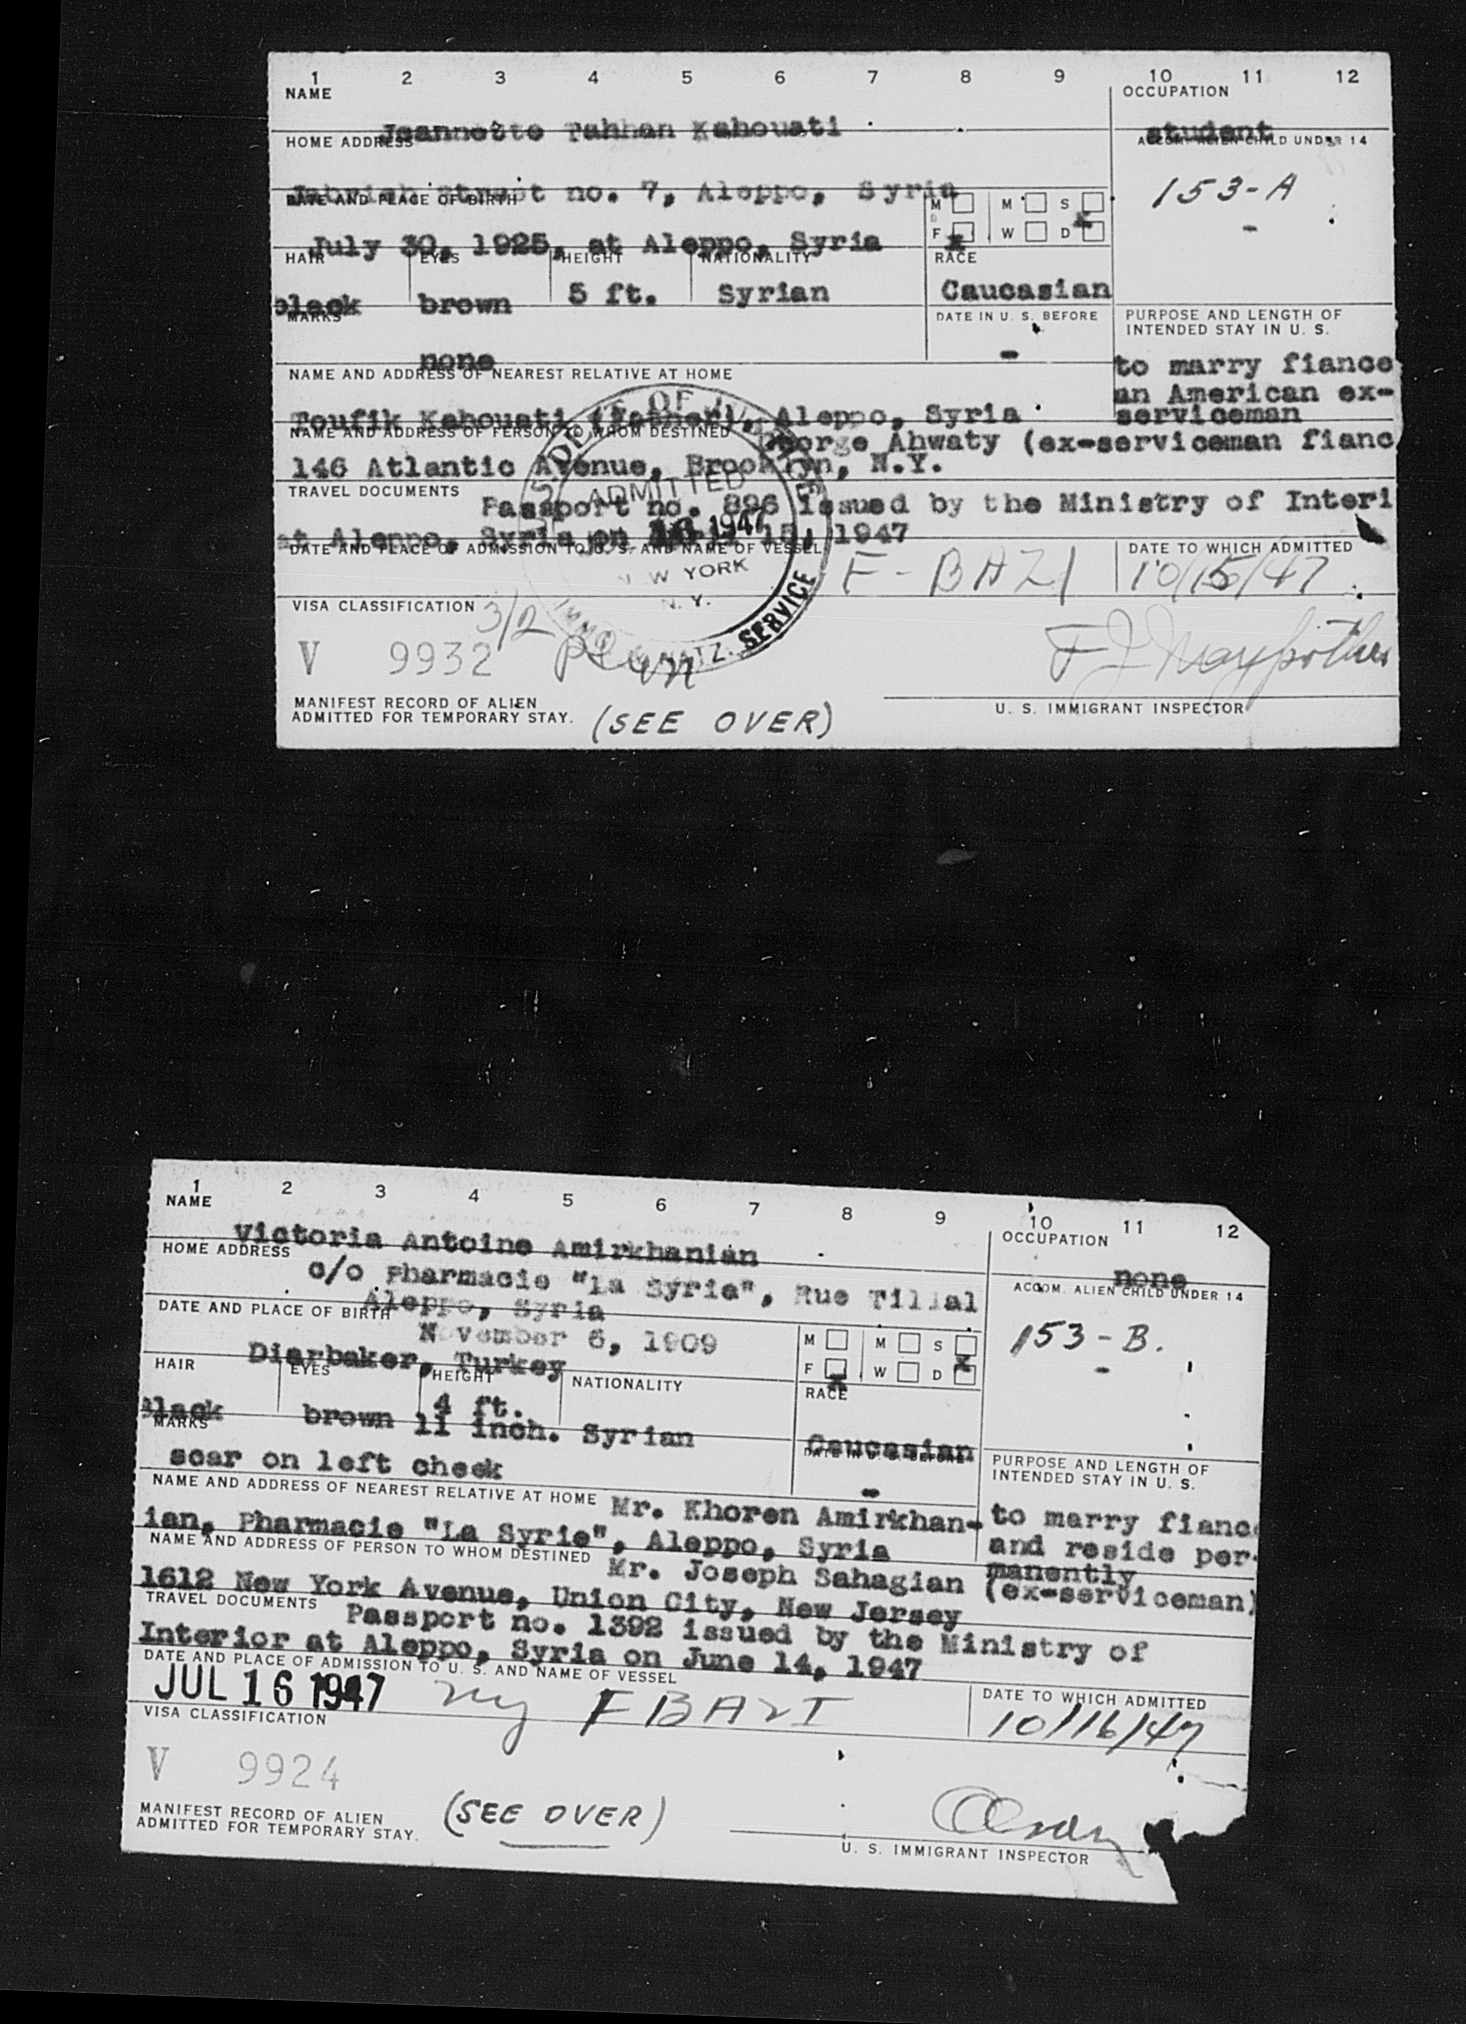 1 2 3 4 5 6 7 8 9 10 11 12
NAME OCCUPATION
Jeannette Tahhan Kahouati student
HOME ADDRESS ACCOM. ALIEN CHILD UNDER 14
street no. 7, Aleppo, Syria 153-A
DATE AND PLACE OF BIRTH M M S
July 30, 1925, at Aleppo, Syria F x W D x
HAIR EYES HEIGHT NATIONALITY RACE
black brown 5 ft. Syrian Caucasian
MARKS DATE IN U. S. BEFORE PURPOSE AND LENGTH OF
INTENDED STAY IN U. S.
none - to marry fiance
NAME AND ADDRESS OF NEAREST RELATIVE AT HOME an American ex-
Toufik Kahouati (father), Aleppo, Syria serviceman
NAME AND ADDRESS OF PERSON TO WHOM DESTINED George Ahwaty (ex-serviceman fianc
146 Atlantic Avenue, Brooklyn, N.Y.
TRAVEL DOCUMENTS Passport no. 896 issued by the Ministry of Interi
at Aleppo, Syria on 15, 1947
DATE AND PLACE OF ADMISSION TO U. S. AND NAME OF VESSEL DATE TO WHICH ADMITTED
F-BAZI 10/15/47
U.S. DEPT. OF JUSTICE
ADMITTED
1947
NEW YORK
N. Y.
IMMIG. & NATZ. SERVICE
VISA CLASSIFICATION 3/2
V 9932
MANIFEST RECORD OF ALIEN
ADMITTED FOR TEMPORARY STAY. (SEE OVER) U. S. IMMIGRANT INSPECTOR
1 2 3 4 5 6 7 8 9 10 11 12
NAME OCCUPATION
Victoria Antoine Amirkhanian none
HOME ADDRESS ACCOM. ALIEN CHILD UNDER 14
c/o Pharmacie "La Syrie", Rue Tillal
Aleppo, Syria 153-B.
DATE AND PLACE OF BIRTH
November 6, 1909 M M S
Diarbaker, Turkey F x W D x
HAIR EYES HEIGHT NATIONALITY RACE
4 ft.
black brown 11 inch. Syrian Caucasian
MARKS DATE IN U. S. BEFORE PURPOSE AND LENGTH OF
INTENDED STAY IN U. S.
scar on left cheek -
NAME AND ADDRESS OF NEAREST RELATIVE AT HOME Mr. Khoren Amirkhan- to marry fiance
ian, Pharmacie "La Syrie", Aleppo, Syria and reside per-
manently
NAME AND ADDRESS OF PERSON TO WHOM DESTINED Mr. Joseph Sahagian (ex-serviceman)
1612 New York Avenue, Union City, New Jersey
TRAVEL DOCUMENTS Passport no. 1392 issued by the Ministry of
Interior at Aleppo, Syria on June 14, 1947
DATE AND PLACE OF ADMISSION TO U. S. AND NAME OF VESSEL DATE TO WHICH ADMITTED
JUL 16 1947 ny FBAZI 10/16/47
VISA CLASSIFICATION
V 9924
MANIFEST RECORD OF ALIEN
ADMITTED FOR TEMPORARY STAY. (SEE OVER) U. S. IMMIGRANT INSPECTOR